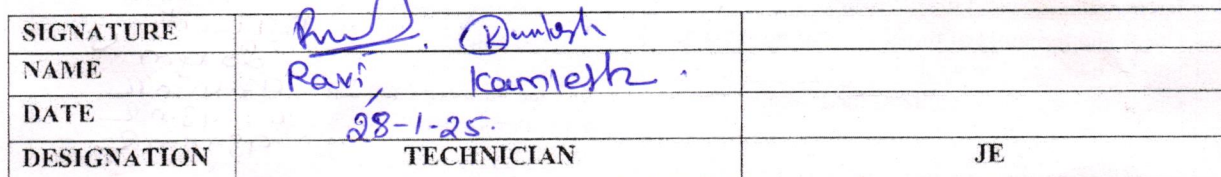 SIGNATURE Ravi, Kamlesh
NAME Ravi, Kamlesh.
DATE 28-1-25.
DESIGNATION TECHNICIAN JE